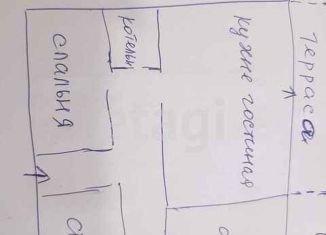 Терраса
кухне гостиная
котельн
спальня
etagi